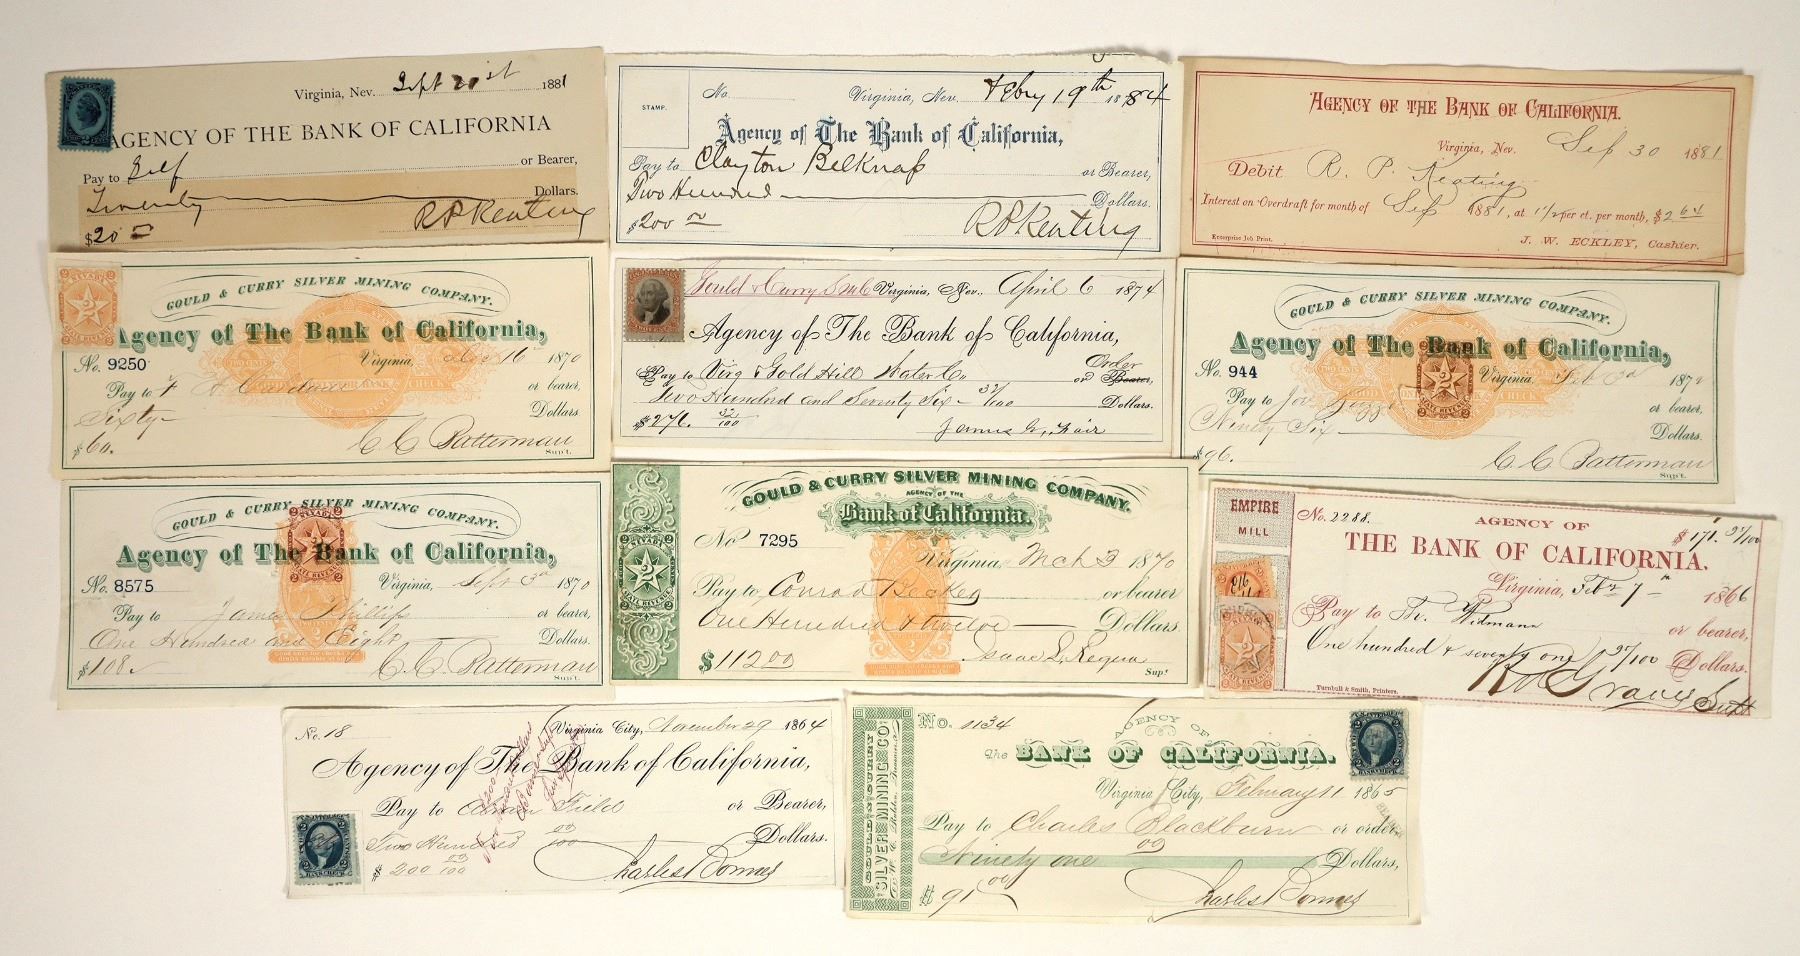 Virginia, Nev. Sept 21st 1881
AGENCY OF THE BANK OF CALIFORNIA
Pay to Self or Bearer,
Twenty Dollars.
$20 RPKeating
STAMP.
No. Virginia, Nev. Febry 19th 1884
Agency of The Bank of California,
Pay to Clayton Belknap or Bearer,
Two Hundred Dollars.
$200 RPKeating
AGENCY OF THE BANK OF CALIFORNIA.
Virginia, Nev. Sep 30 1881
Debit R. P. Keating
Interest on Overdraft for month of Sep 1881, at 1 1/2 per ct. per month, $2 64
Enterprise Job Print. J. W. ECKLEY, Cashier.
NEVADA
GOULD & CURRY SILVER MINING COMPANY.
Agency of The Bank of California,
No. 9250 Virginia, 16 1870
Pay to or bearer,
Sixty Dollars
$60. C C Batterman
Sup't.
Gould & Curry Virginia, Nev., April 6 1874
Agency of The Bank of California,
Pay to Virg & Gold Hill Water Co. or Bearer, Order
Two Hundred and Seventy Six 32/100 Dollars.
$276. 32/100 James G. Fair
GOULD & CURRY SILVER MINING COMPANY.
Agency of The Bank of California,
No. 944 Virginia, 187
Pay to or bearer,
Ninety Six Dollars.
$96. C C Batterman
Sup't.
GOULD & CURRY SILVER MINING COMPANY.
Agency of The Bank of California,
No. 8575 Virginia, Sept 3d 1870
Pay to James Phillips or bearer,
One Hundred and Eight Dollars.
$108. C. C. Batterman
Sup't.
GOULD & CURRY SILVER MINING COMPANY.
AGENCY OF THE
Bank of California.
No 7295
Virginia, Mch 3 1870
Pay to Conrad Becker or bearer
One Hundred & twelve Dollars.
$112 00 Isaac L. Requa
Supt
EMPIRE
MILL
No. 2288. AGENCY OF $171. 97/100
THE BANK OF CALIFORNIA.
Virginia, Feb 7 1866
Pay to Widmann or bearer,
One hundred & seventy one 97/100 Dollars.
Turnbull & Smith, Printers. Graves Supt
No. 18 Virginia City, November 29 1864
Agency of The Bank of California,
Pay to Field or Bearer,
Two Hundred 00/100 Dollars.
$200 00/100 Charles L Bonner
GOULD & CURRY
SILVER MINING CO.
No. 1134 AGENCY OF
the BANK OF CALIFORNIA.
Virginia City, February 11 1865
Pay to Charles Blackburn or order
Ninety one 00 Dollars,
$91 00 Charles L Bonner